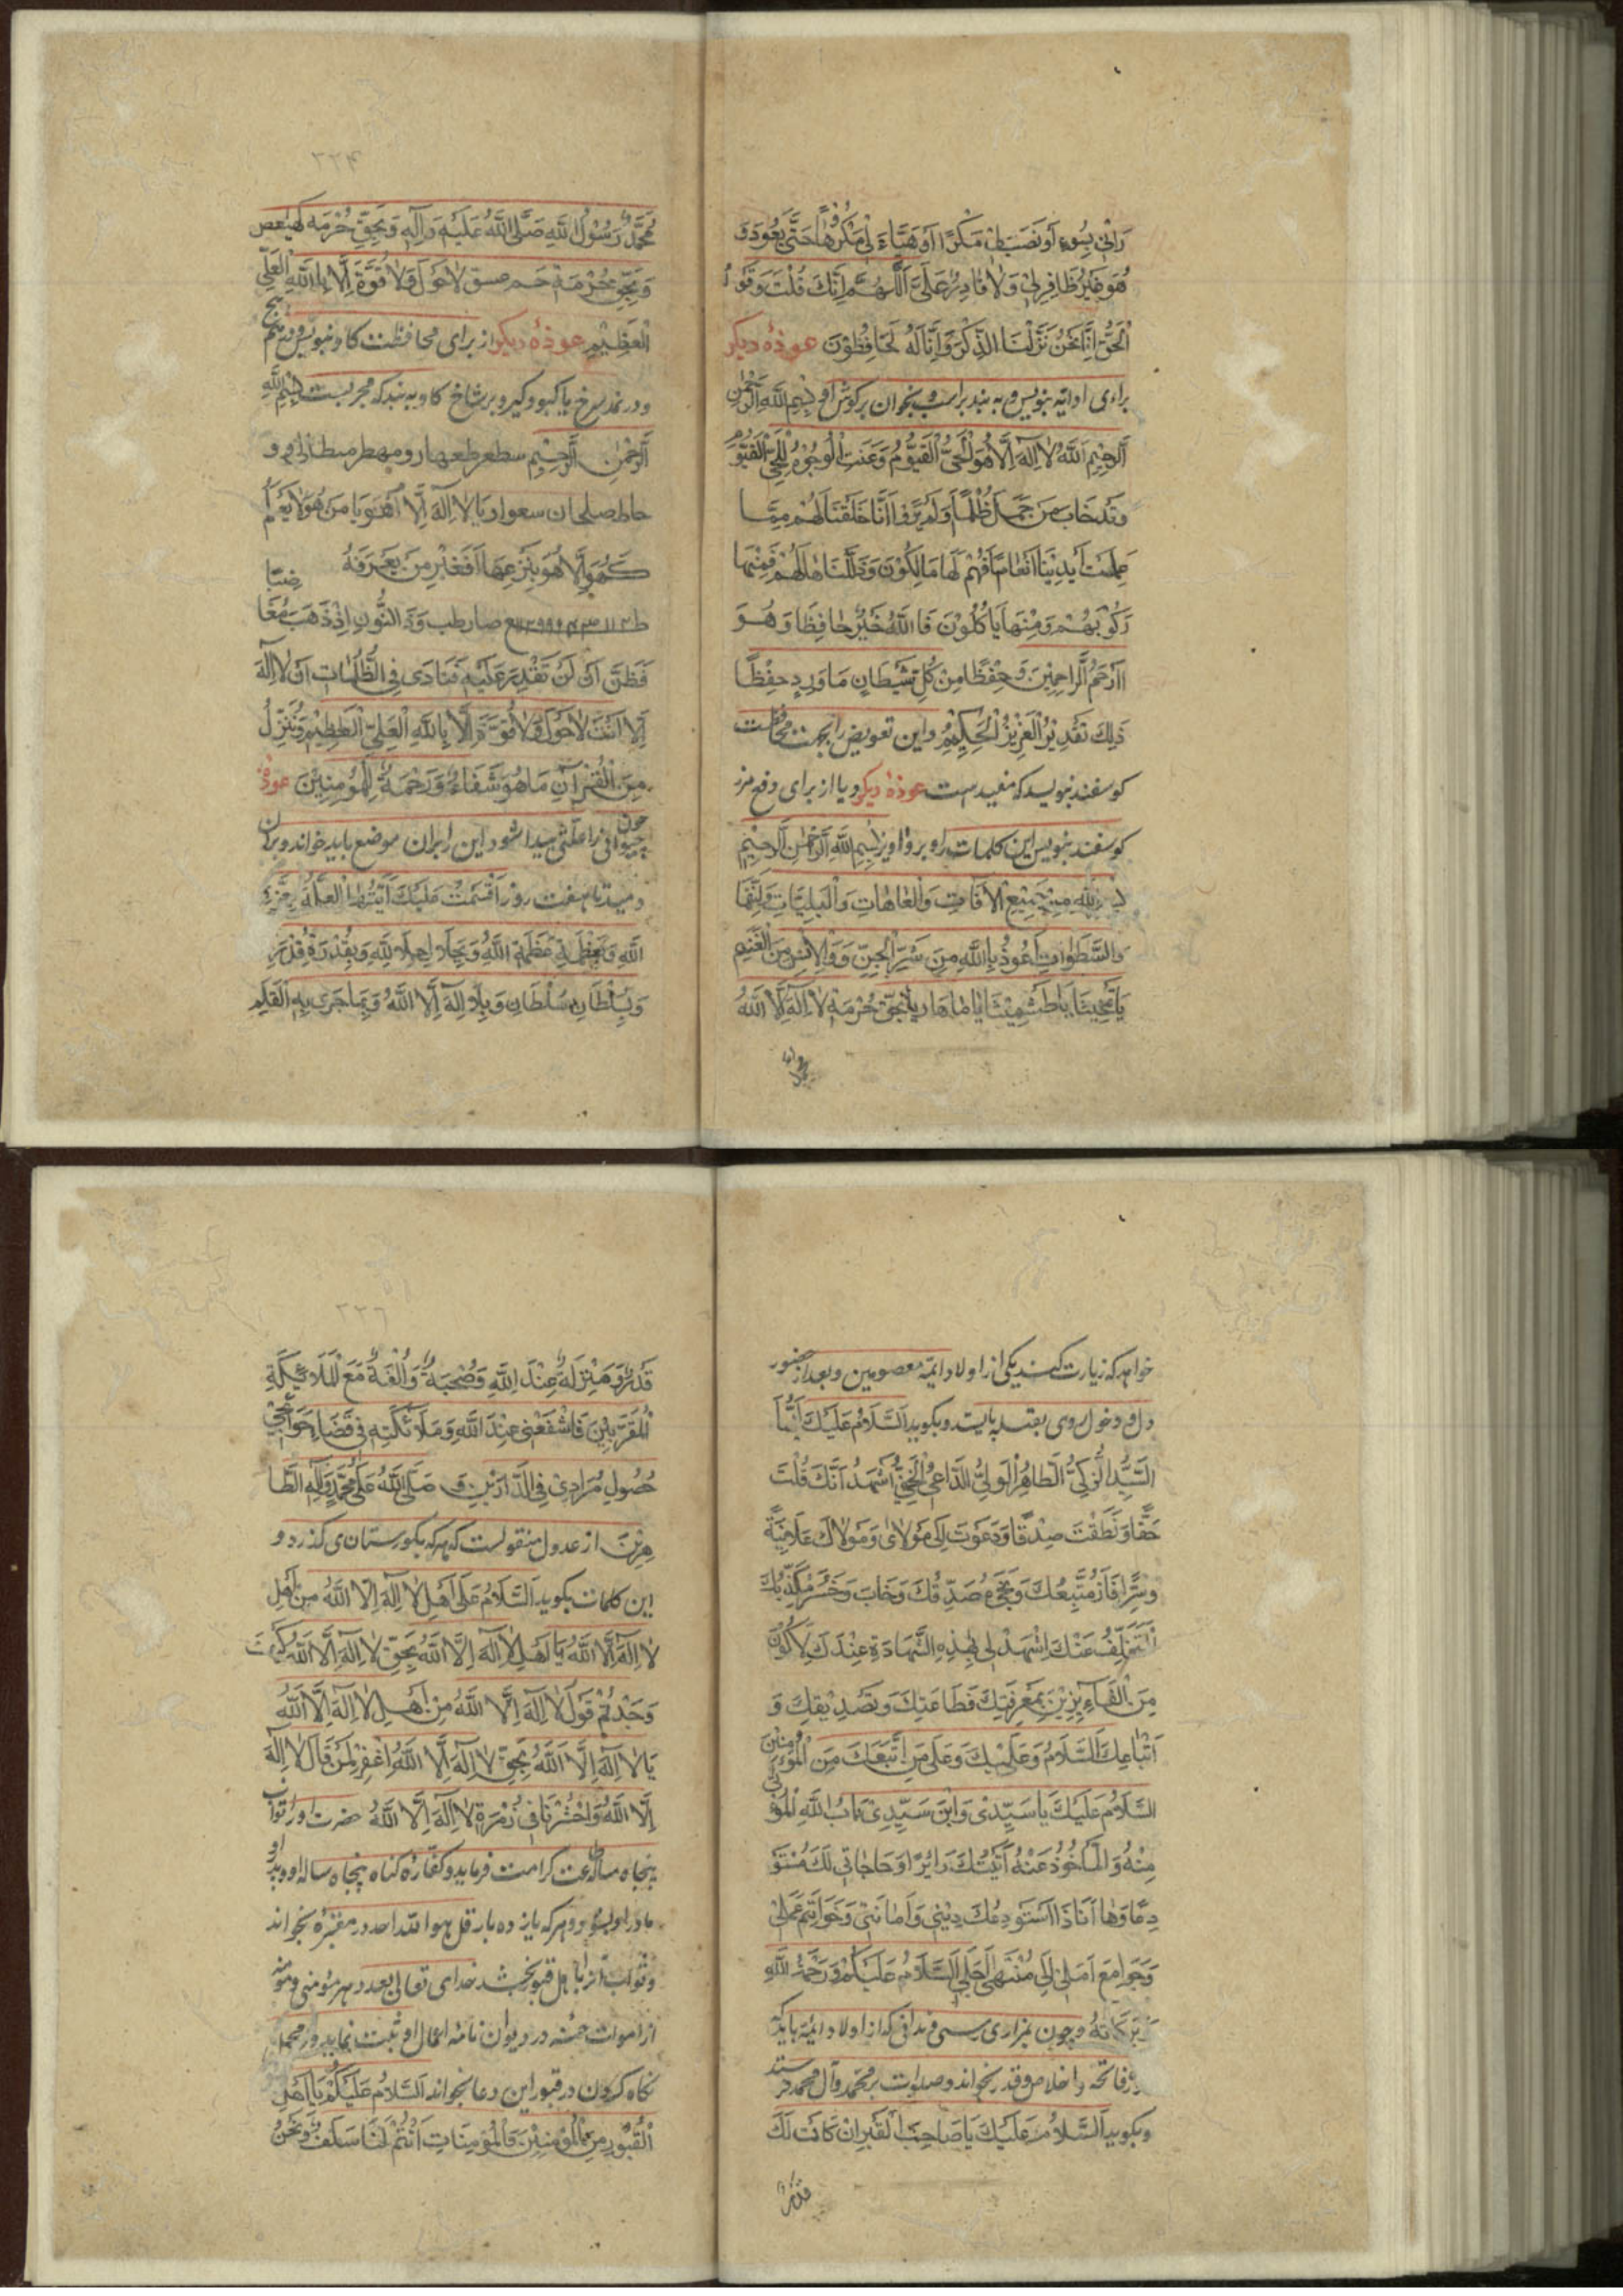 رَانِیْ بِسُوءٍ اَوْ نَصَبَ لِیْ مَکْرًا اَوْ هَیَّاءَ لِیْ مَکْرُوْهًا حَتّٰی یَعُوْدَ وَ
هُوَ غَیْرُ ظَافِرٍ لِیْ وَلَا قَادِرٌ عَلَیَّ اَللّٰهُمَّ اِنَّكَ قُلْتَ وَقَوْلُ
الْحَقُّ اِنَّا نَحْنُ نَزَّلْنَا الذِّکْرَ وَاِنَّا لَهُ لَحَافِظُوْنَ عوذهٔ دیکر
برای بنویس و به بندبراسب و بخوان برکوش او بِسْمِ اللّٰهِ الرَّحْمٰنِ
الرَّحِیْمِ اَللّٰهُ لَا اِلٰهَ اِلَّا هُوَ الْحَیُّ الْقَیُّوْمُ وَعَنَتِ الْوُجُوْهُ لِلْحَیِّ الْقَیُّوْمِ
وَقَدْ خَابَ مَنْ حَمَلَ ظُلْمًا اَوَلَمْ یَرَوْا اَنَّا خَلَقْنَا لَهُمْ مِمَّا
عَمِلَتْ اَیْدِیْنَا اَنْعَامًا فَهُمْ لَهَا مَالِکُوْنَ وَذَلَّلْنَاهَا لَهُمْ فَمِنْهَا
رَکُوْبُهُمْ وَمِنْهَا یَاکُلُوْنَ فَاللّٰهُ خَیْرٌ حَافِظًا وَهُوَ
اَرْحَمُ الرَّاحِمِیْنَ وَحِفْظًا مِنْ کُلِّ شَیْطَانٍ مَارِدٍ حِفْظًا
ذٰلِكَ تَقْدِیْرُ الْعَزِیْزِ الْحَکِیْمِ واین تعویض را بجهت محافظت
کوسفند بنویسد که مفید است عوذهٔ دیکر ویا از برای دفع مرز
کوسفند بنویس این کلمات را و برو آویز بِسْمِ اللّٰهِ الرَّحْمٰنِ الرَّحِیْمِ
بِاللّٰهِ مِنْ جَمِیْعِ الْاٰفَاتِ وَالْعَاهَاتِ وَالْبَلِیَّاتِ
وَالسَّطَوَاتِ اَعُوْذُ بِاللّٰهِ مِنْ شَرِّ الْجِنِّ وَالْاِنْسِ مِنَ الْغَنَمِ
بِحَقِّ حُرْمَةِ لَا اِلٰهَ اِلَّا اللّٰهُ
۲۲۴
مُحَمَّدٌ رَسُوْلُ اللّٰهِ صَلَّی اللّٰهُ عَلَیْهِ وَاٰلِهِ وَبِحَقِّ حُرْمَةِ کٓهٰیٰعٓصٓ
وَبِحَقِّ حُرْمَةِ حٰم عسق لَا حَوْلَ وَلَا قُوَّةَ اِلَّا بِاللّٰهِ الْعَلِیِّ
الْعَظِیْمِ عوذهٔ دیکر از برای محافظت کاو بنویس و به پیچ
ودر نمد سرخ یا کبود کیر و بر شاخ کاو به بند که مجربست بِسْمِ اللّٰهِ
الرَّحْمٰنِ الرَّحِیْمِ
لَا اِلٰهَ اِلَّا هُوَ یَا مَنْ هُوَ لَا یَعْلَمُ
طب وَذَا النُّوْنِ اِذْ ذَهَبَ مُغَا ضِبًا
فَظَنَّ اَنْ لَنْ نَقْدِرَ عَلَیْهِ فَنَادٰی فِی الظُّلُمَاتِ اَنْ لَا اِلٰهَ
اِلَّا اَنْتَ لَا حَوْلَ وَلَا قُوَّةَ اِلَّا بِاللّٰهِ الْعَلِیِّ الْعَظِیْمِ وَنُنَزِّلُ
مِنَ الْقُرْاٰنِ مَا هُوَ شِفَاءٌ وَرَحْمَةٌ لِلْمُؤْمِنِیْنَ عوذهٔ
چون حیوانی را علتی پیدا شود این را بران موضع باید خواند و بران
دمید تا هفت روز اَقْسَمْتُ عَلَیْكَ اَیَّتُهَا الْعِلَّةُ بِعِزَّةِ
اللّٰهِ وَبِعَظَمَةِ عَظَمَةِ اللّٰهِ وَبِجَلَالِ جَلَالِ اللّٰهِ وَبِقُدْرَةِ قُدْرَةِ
وَبِسُلْطَانِ سُلْطَانِ وَبِلَا اِلٰهَ اِلَّا اللّٰهُ وَبِمَا جَرٰی بِهِ الْقَلَمُ
خواهد که زیارت کند یکی از اولاد ائمّه معصومین و بعد از حضور
و دخول روی بقبله بایستد و بکوید اَلسَّلَامُ عَلَیْكَ اَیُّهَا
السَّیِّدُ الزَّکِیُّ الطَّاهِرُ الْوَلِیُّ الدَّاعِیْ الْحَفِیُّ اَشْهَدُ اَنَّكَ قُلْتَ
حَقًّا وَنَطَقْتَ صِدْقًا وَدَعَوْتَ اِلٰی مَوْلَایَ وَمَوْلَاكَ عَلَانِیَةً
وَسِرًّا فَازَ مُتَّبِعُكَ وَنَجٰی مُصَدِّقُكَ وَخَابَ وَخَسِرَ مُکَذِّبُكَ
اَلْمُتَخَلِّفُ عَنْكَ اِشْهَدْ لِیْ بِهٰذِهِ الشَّهَادَةِ عِنْدَكَ لِاَکُوْنَ
مِنَ الْفَائِزِیْنَ بِمَعْرِفَتِكَ وَطَاعَتِكَ وَتَصْدِیْقِكَ وَ
اتْبَاعِكَ السَّلَامُ وَعَلَیْكَ وَعَلٰی مَنِ اتَّبَعَكَ مِنَ الْمُؤْمِنِیْنَ
السَّلَامُ عَلَیْكَ یَا سَیِّدِیْ وَابْنَ سَیِّدِیْ بَابُ اللّٰهِ الْمُؤْتٰی
مِنْهُ وَالْمَأْخُوْذُ عَنْهُ اَتَیْتُكَ زَائِرًا وَحَاجَاتِیْ لَكَ مُسْتَوْ
دِعًا وَهَا اَنَا ذَا اَسْتَوْدِعُكَ دِیْنِیْ وَاَمَانَتِیْ وَخَوَاتِیْمَ عَمَلِیْ
وَجَوَامِعَ اَمَلِیْ اِلٰی مُنْتَهٰی اَجَلِیْ السَّلَامُ عَلَیْکُمْ وَرَحْمَةُ اللّٰهِ
وَبَرَکَاتُهُ وچون بمزاری رسی و ندانی که از اولاد ائمّه باید که
فاتحه و اخلاص و قدر بخواند وصلوات بر محمّد وآل محمّد فرستد
وبکوید اَلسَّلَامُ عَلَیْكَ یَا صَاحِبَ الْقَبْرِ اِنْ کَانَتْ لَكَ
قَدْرٌ
۲۲۶
قَدْرٌ وَمَنْزِلَةٌ عِنْدَ اللّٰهِ وَصُحْبَةٌ وَاُلْفَةٌ مَعَ الْمَلَائِکَةِ
الْمُقَرَّبِیْنَ فَاشْفَعْنِیْ عِنْدَ اللّٰهِ وَمَلَائِکَتِهِ فِیْ قَضَاءِ حَوَائِجِیْ
حُصُوْلِ مُرَادِیْ فِی الدَّارَیْنِ وَ صَلَّی اللّٰهُ عَلٰی مُحَمَّدٍ وَاٰلِهِ الطَّا
هِرِیْنَ از عدول منقولست که هرکه بکورستان می کذرد و
این کلمات بکوید اَلسَّلَامُ عَلٰی اَهْلِ لَا اِلٰهَ اِلَّا اللّٰهُ مِنْ اَهْلِ
لَا اِلٰهَ اِلَّا اللّٰهُ یَا اَهْلَ لَا اِلٰهَ اِلَّا اللّٰهُ بِحَقِّ لَا اِلٰهَ اِلَّا اللّٰهُ کَیْفَ
وَجَدْتُمْ قَوْلَ لَا اِلٰهَ اِلَّا اللّٰهُ مِنْ اَهْلِ لَا اِلٰهَ اِلَّا اللّٰهُ
یَا لَا اِلٰهَ اِلَّا اللّٰهُ بِحَقِّ لَا اِلٰهَ اِلَّا اللّٰهُ اغْفِرْ لِمَنْ قَالَ لَا اِلٰهَ
اِلَّا اللّٰهُ وَاحْشُرْنَا فِیْ زُمْرَةِ لَا اِلٰهَ اِلَّا اللّٰهُ حضرت او را ثواب
پنجاه ساله طاعت کرامت فرماید و کفّاره کناه پنجاه ساله او و پدر او
مادر او بشود و هرکه یازده بار قل هو اللّه احد در مقبره بخواند
و ثواب آنرا باهل قبور بخشد خدای تعالی بعدد هر مؤمنی و مؤمنه
از اموات حسنه در دیوان نامه اعمال او ثبت نماید و در محمل
نکاه کردن در قبور این دعا بخواند اَلسَّلَامُ عَلَیْکُمْ یَا اَهْلَ
الْقُبُوْرِ مِنَ الْمُؤْمِنِیْنَ وَالْمُؤْمِنَاتِ اَنْتُمْ لَنَا سَلَفٌ وَنَحْنُ